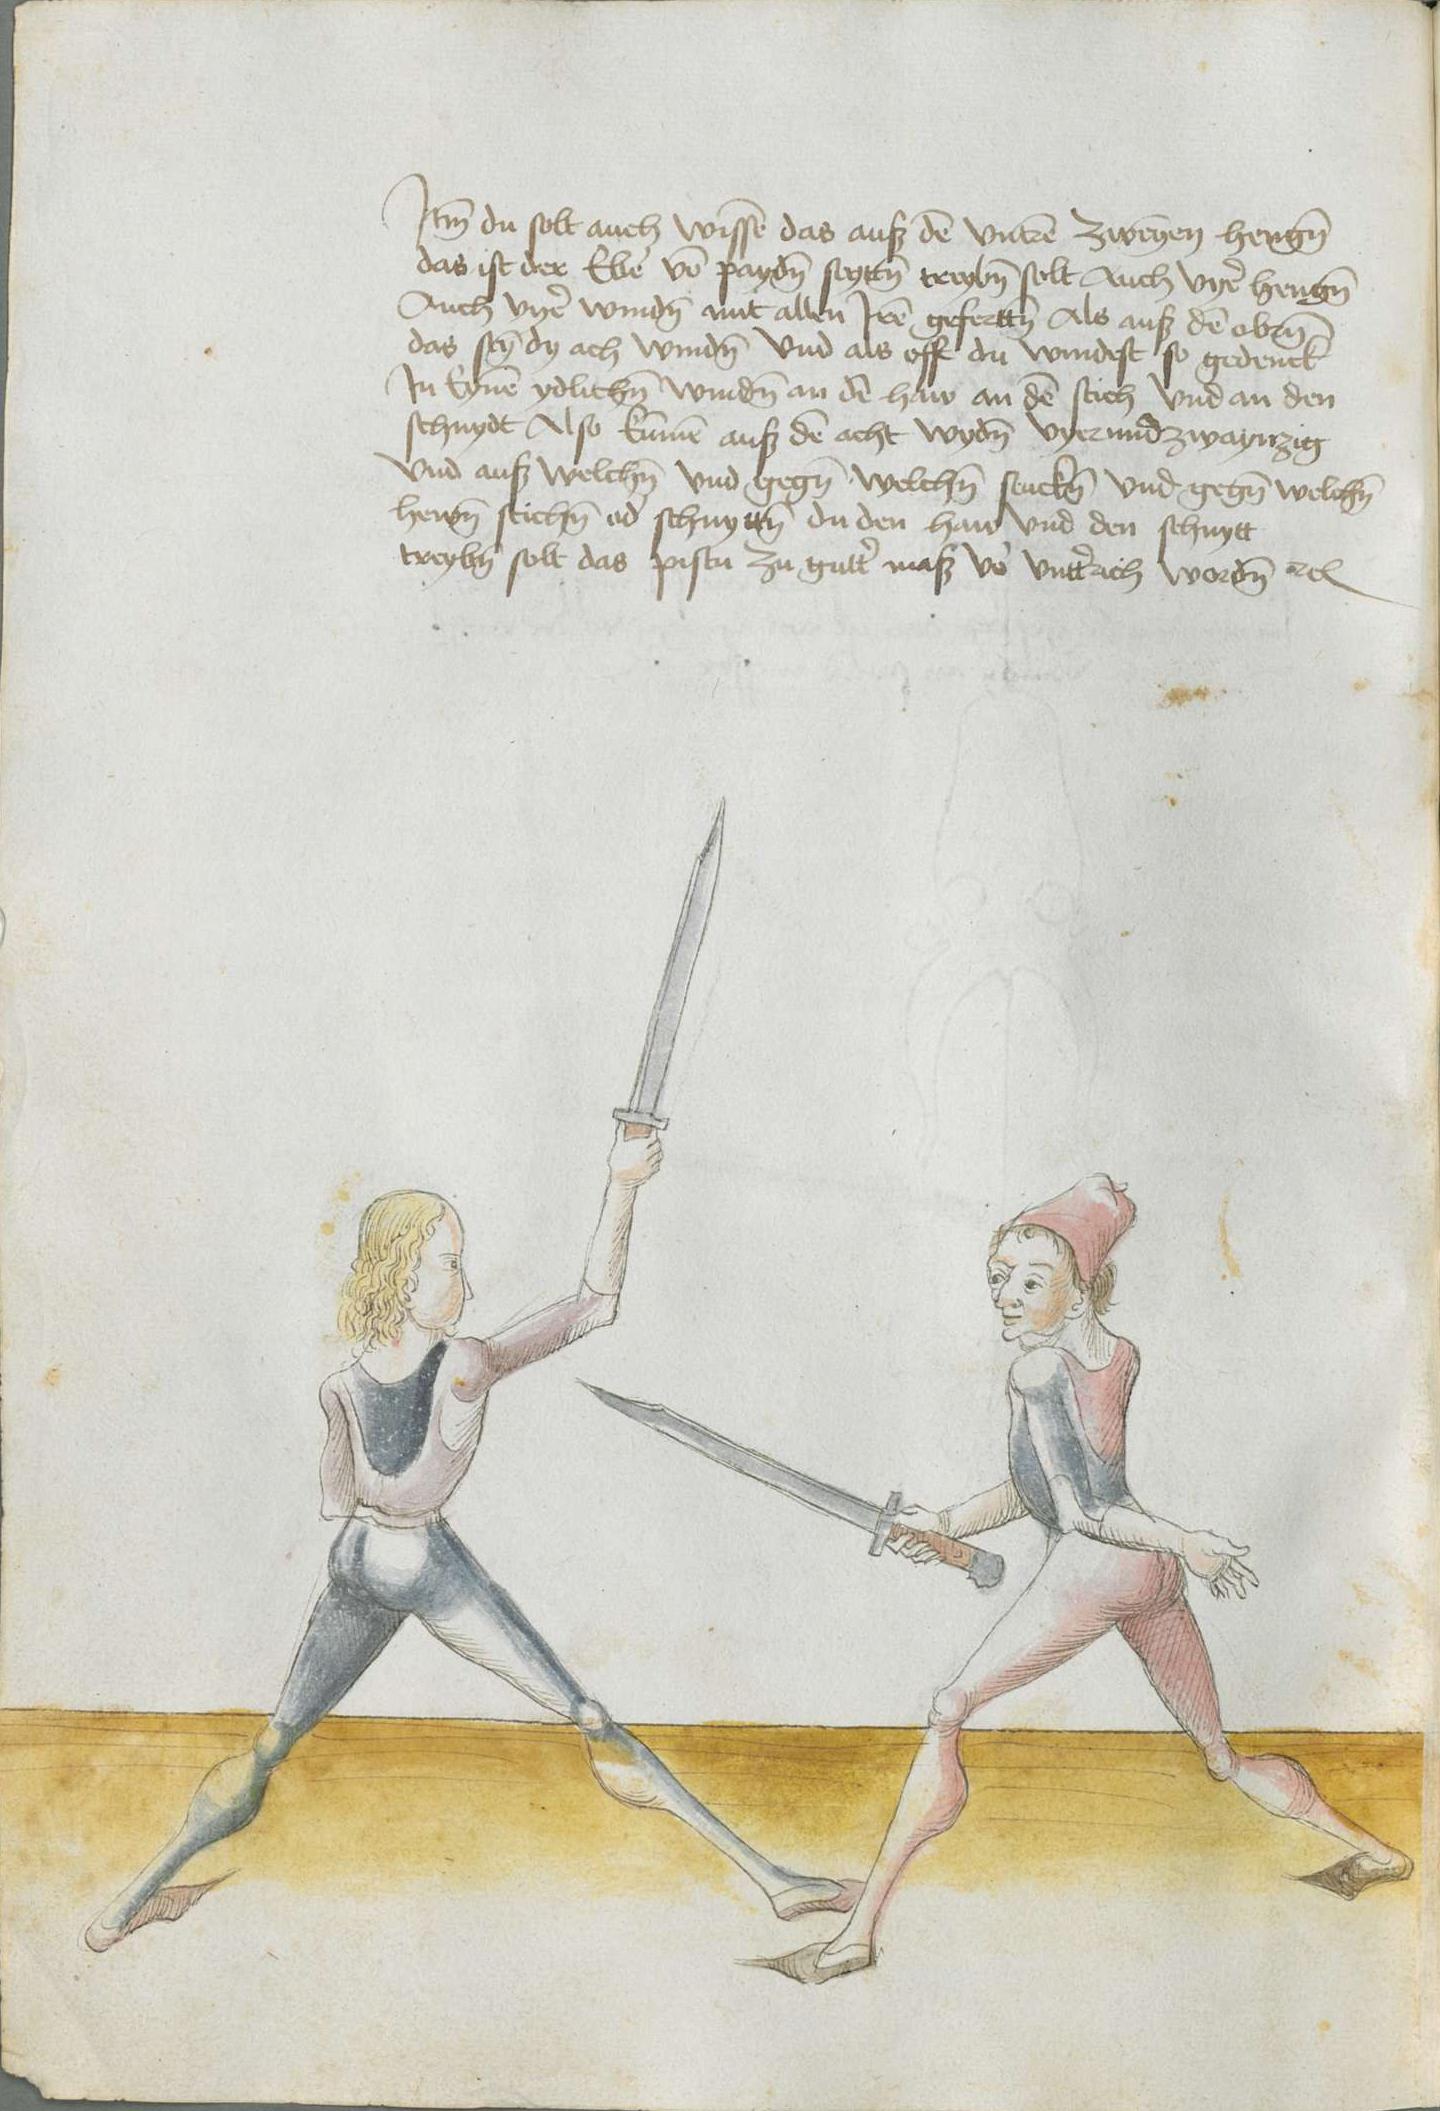 Itm̄ du solt auch wissē das auß dē vntrē zweyen hengn̄
das ist der Ebē vō paydn̄ seyttn̄ treybn̄ solt Auch vyer̄ hengn̄
Auch vyer̄ windn̄ mit allen Irē geferttn̄ Als auß dē obrn̄
das sen̄ dy ach windn̄ vnd als offt du windest so gedenck
In Eynē ydlichn̄ windn̄ an dē haw an dē stich vnd an den
schnydt Also kūmē auß dē acht wydn̄ vyerundzwaynzig
vnd auß welchn̄ vnd gegn̄ welchn̄ stuckn̄ vnd gegn̄ welchn̄
hewn̄ stichn̄ od̄ schnyttn̄ du den haw vnd den schnytt
treybn̄ solt das pistu zu gutt̄ maß vō vntt̄rich wordn̄